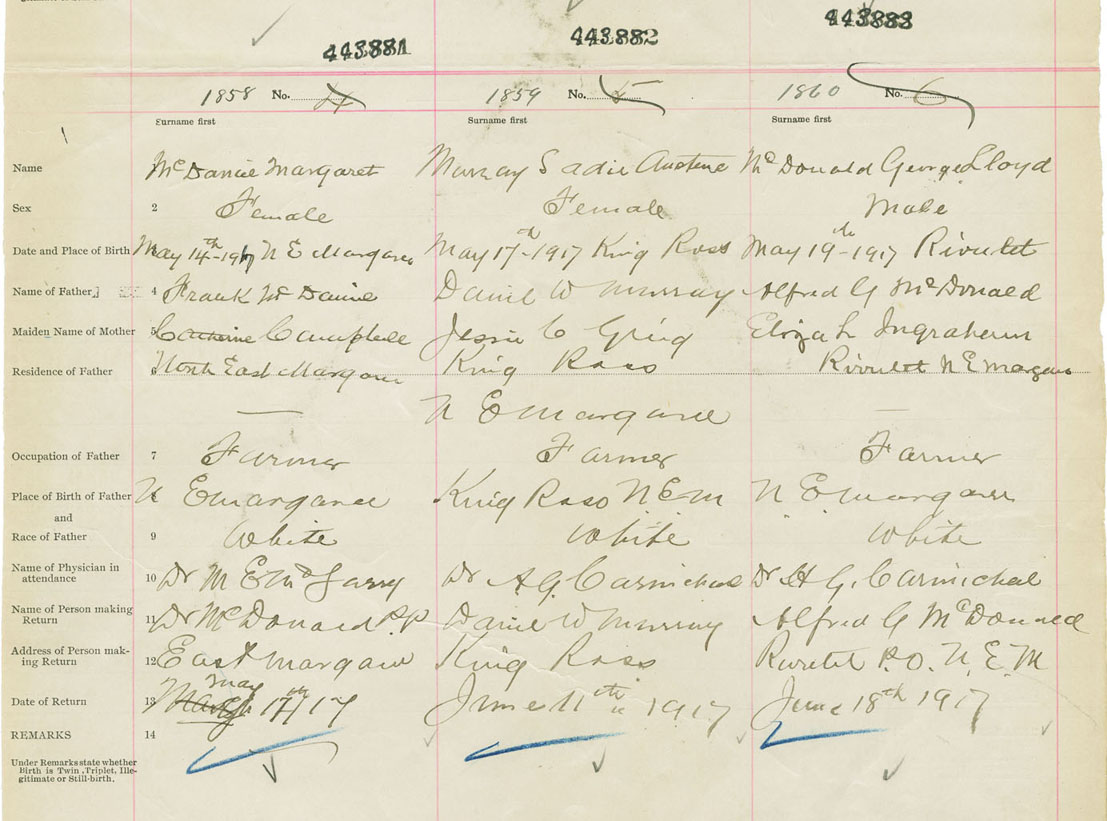 443881 443882 443883
1858 No. 4 1859 No. 5 1860 No. 6
Surname first Surname first Surname first
Name McDaniel Margaret Murray Sadie Austene McDonald George Lloyd
Sex 2 Female Female Male
Date and Place of Birth May 14th-1917 N E Margaree May 17th-1917 King Ross May 19th-1917 Rivulet
Name of Father 4 Frank McDaniel Daniel W Murray Alfred G McDonald
Maiden Name of Mother 5 Catherine Campbell Jessie C Eliza L Ingraham
Residence of Father 6 North East Margaree King Ross Rivulet N E Margaree
N E Margaree
Occupation of Father 7 Farmer Farmer Farmer
Place of Birth of Father N E Margaree King Ross N.E.M N. E. Margaree
and
Race of Father 9 White White White
Name of Physician in
attendance 10 Dr M E McGarry Dr A G Carmichael Dr G. Carmichael
Name of Person making
Return 11 Dr McDonald P.P Daniel W Murray Alfred G McDonald
Address of Person mak-
ing Return 12 East Margaree King Ross Rivulet P.O. N. E M
May
Date of Return 13 March 17th/17 June 11th 1917 June 18th 1917
REMARKS 14
Under Remarks state whether
Birth is Twin, Triplet, Ille-
gitimate or Still-birth.